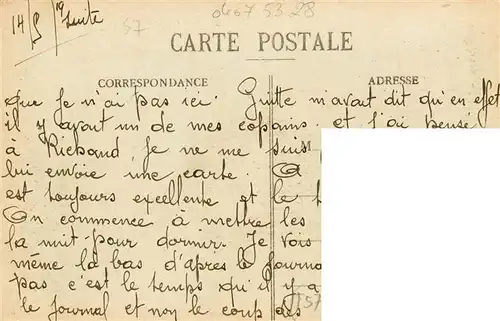 14/5/19 suite
57
0607 53 28
CARTE POSTALE
CORRESPONDANCE
ADRESSE
que je n'ai pas ici. Guitte m'avait dit qu'en effet
il y avait un de mes copains et j'ai pensé
à Richand, je ne me suis
M
lui envoie une carte. A
est toujours excellente et le t
On commence à mettre les
la nuit pour dormir. Je vois
même là bas d'après le journa
pas c'est le temps qu'il y a
57
le journal et non le coup des